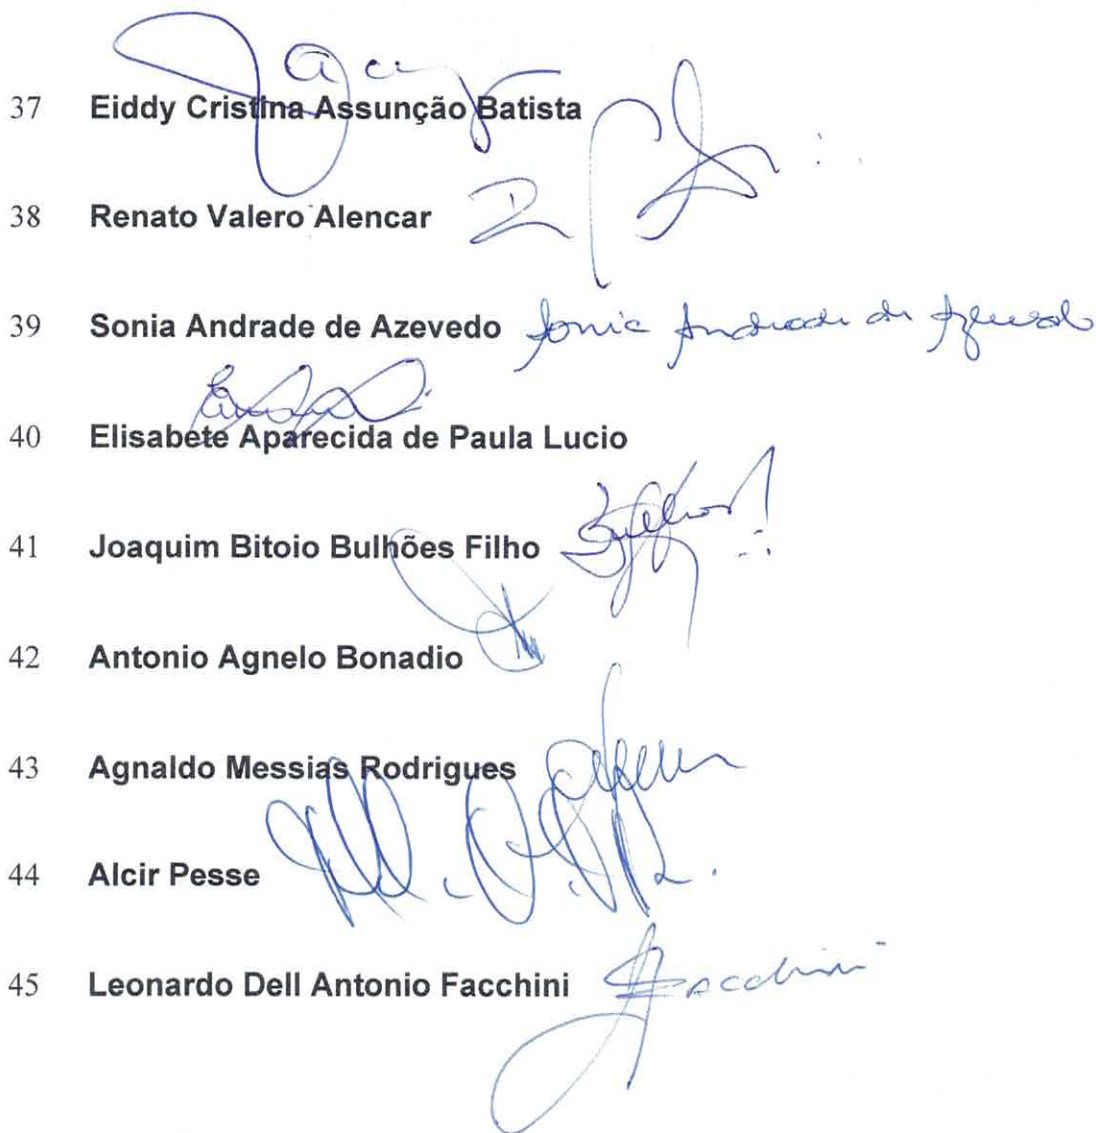 37 Eiddy Cristina Assunção Batista
38 Renato Valero Alencar
39 Sonia Andrade de Azevedo Sonia Andrade de Azevedo
40 Elisabete Aparecida de Paula Lucio
41 Joaquim Bitoio Bulhões Filho
42 Antonio Agnelo Bonadio
43 Agnaldo Messias Rodrigues
44 Alcir Pesse
45 Leonardo Dell Antonio Facchini Facchini